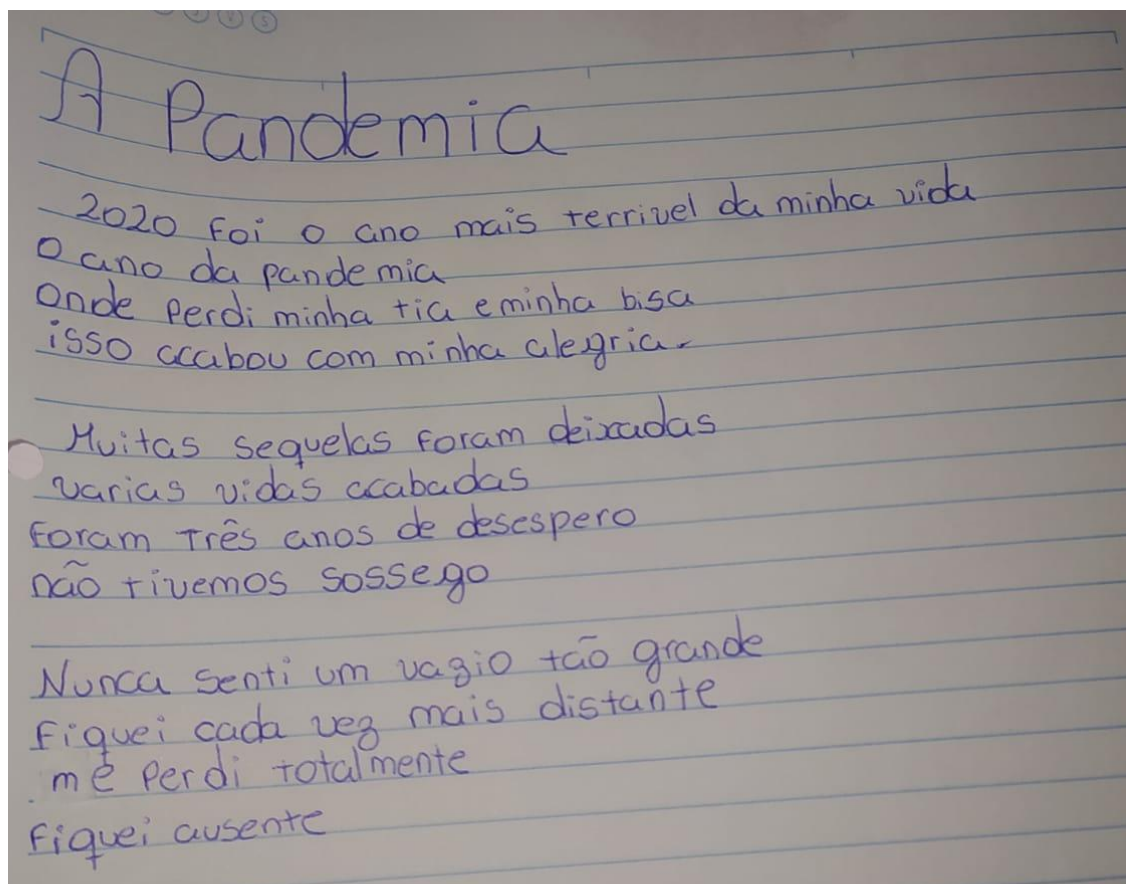 A Pandemia
2020 foi o ano mais terrivel da minha vida
O ano da pandemia
Onde perdi minha tia e minha bisa
isso acabou com minha alegria.
Muitas sequelas foram deixadas
varias vidas acabadas
foram três anos de desespero
não tivemos sossego
Nunca senti um vazio tão grande
fiquei cada vez mais distante
me perdi totalmente
fiquei ausente